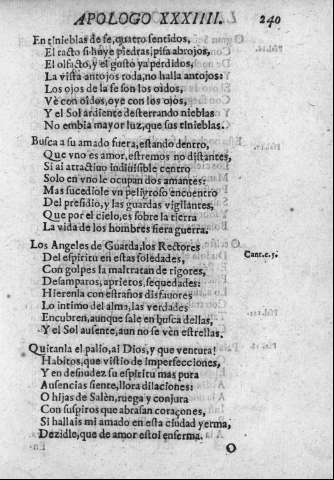 APOLOGO XXXIIII. 240
En tinieblas de fe, quatro sentidos,
El tacto si huye piedras, pisa abrojos,
El olfacto, y el gosto ya perdidos,
La vista antojos toda, no halla antojos:
Los ojos de la fe son los oidos,
Vè con oidos, oye con los ojos,
Y el Sol ardiente desterrando nieblas
No embia mayor luz, que sus tinieblas.
Busca a su amado fuera, estando dentro,
Que vno es amor, estremos no distantes,
Si al attactiuo indiuisible centro
Solo en vno le ocupan dos amantes:
Mas sucediole vn peligroso encuentro
Del presidio, y las guardas vigilantes,
Que por el cielo, es sobre la tierra
La vida de los hombres fiera guerra.
Los Angeles de Guarda, los Rectores
Cant. c. 5.
Del espiritu en estas soledades,
Con golpes la maltratan de rigores,
Desamparos, aprietos, sequedades:
Hierenla con estraños disfauores
Lo intimo del alma, las verdades
Encubren, aunque sale en busca dellas,
Y el Sol ausente, aun no se vèn estrellas.
Quitanla el palio, ai Dios, y que ventura!
Habitos, que vistio de imperfecciones,
Y en desnudez su espiritu mas pura
Ausencias siente, llora dilaciones:
O hijas de Salèn, ruega y conjura
Con suspiros que abrasan coraçones,
Si hallais mi amado en esta ciudad yerma,
Dezidle, que de amor estoi enferma.
O